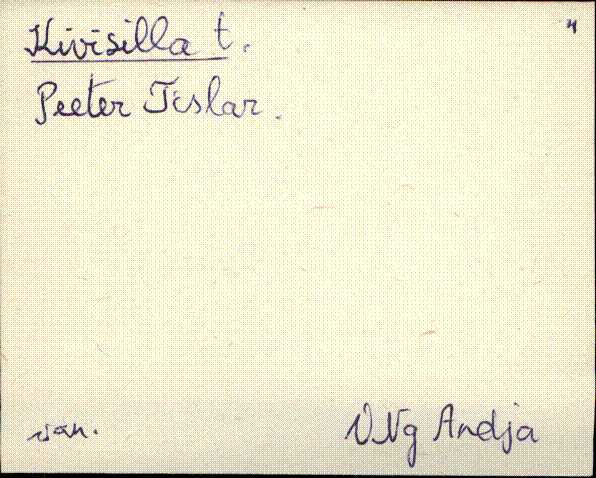 Kivisilla t.
Peeter Tislar.
van.
VNg Andja